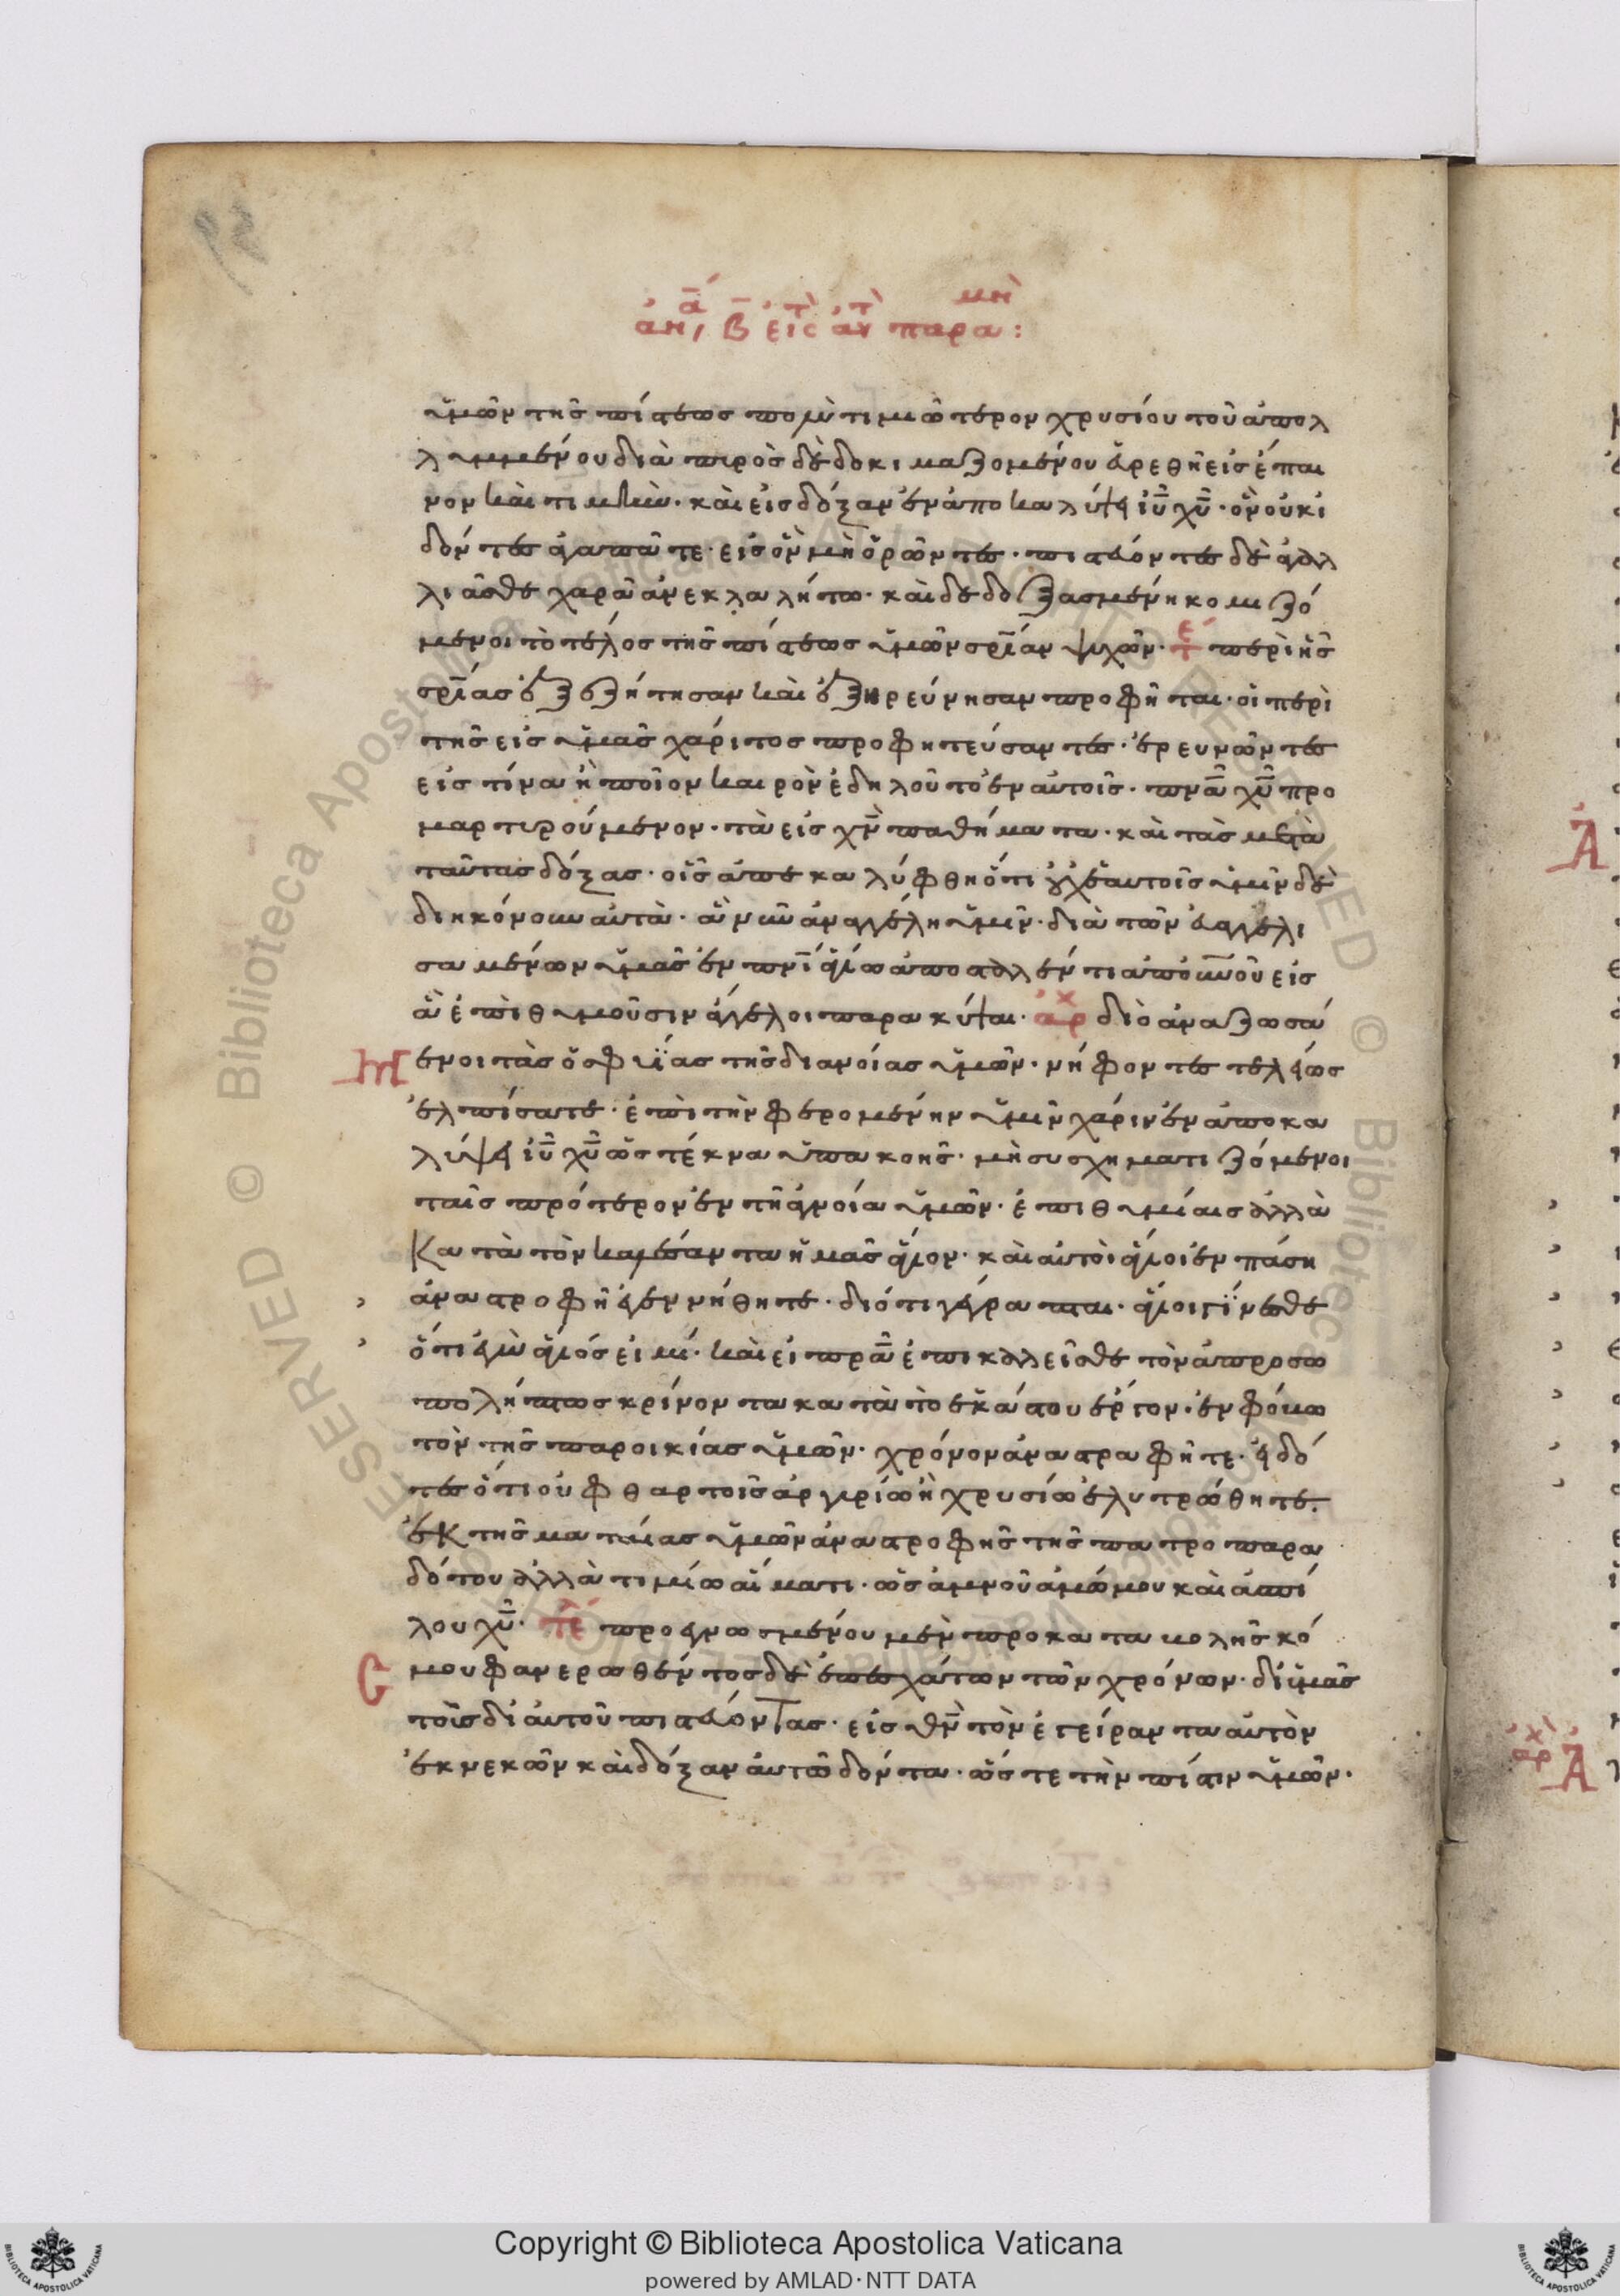 ἀν, ᾱ Β̄ εἰς τὴν ἀντ παραμη :
ὑμῶν τῆς πίστεως πολὺ τιμιώτερον χρυσίου τοῦ ἀπολ
λυμμένου διὰ πυρὸς δὲ δοκιμαζομένου εὑρεθῆ εἰς ἔπαι
νον καὶ τιμὴν· καὶ εἰς δόξαν ἐν ἀποκαλύψει ἰῦ χῦ· ὃν οὐκ ἰ
δόντες ἀγαπᾶτε· εἰς ὃν μὴ ὁρῶντες· πιστεύοντες δὲ ἀγαλ
λιᾶσθε χαρᾶ ἀνεκλαλήτω· καὶ δεδοξασμένη κομιζό
μενοι τὸ τέλος τῆς πίστεως ὑμῶν σρίαν ψυχῶν· τε περὶ ἧς
σρίας ἐξεζήτησαν καὶ ἐξηρεύνησαν προφῆται· οἱ περὶ
τῆς εἰς ὑμᾶς χάριτος προφητεύσαντες· ἐρευνῶντες
εἰς τίνα ἢ ποῖον καιρὸν ἐδηλοῦτο ἐν αὐτοῖς· πνᾶ χῦ προ
μαρτυρούμενον· τὰ εἰς χν παθήματα· καὶ τὰς μετὰ
ταῦτας δόξας· οἷς ἀπεκαλύφθη ὅτι οὐχ ἑαυτοῖς ὑμῖν δὲ
διηκόνουν αὐτὰ· ἃ νῦν ἀναγγέλη ὑμῖν· διὰ τῶν εὐαγγελι
σαμένων ὑμᾶς ἐν πνι ἁγίω ἀποσταλέντι ἀπ' οὐνοῦ εἰς
ἃ ἐπιθυμοῦσιν ἄγγελοι παρακύψαι· ἀρχ διὸ ἀναζωσά
Μ ενοι τὰς ὀσφύας τῆς διανοίας ὑμῶν· νήφοντες τελείως
ἐλπίσατε· ἐπὶ τὴν φερομένην ὑμῖν χάριν ἐν ἀποκα
λύψει ἰῦ χῦ ὡς τέκνα ὑπακοῆς· μὴ συσχηματιζόμενοι
ταῖς πρότερον ἐν τῆ ἀγνοία ὑμῶν· ἐπιθυμίαις ἀλλὰ
Κατὰ τὸν καλέσαντα ἡμᾶς ἅγιον· καὶ αὐτοὶ ἅγιοι ἐν πάση
ἀναστροφῆ γεννήθητε· διότι γέγραπται· ἅγιοι γίνεσθε
ὅτι ἐγὼ ἅγιός εἰμι· καὶ εἰ πρᾶ ἐπικαλεῖσθε τὸν ἀπροσω
πολήπτως κρίνοντα κατὰ τὸ ἑκάστου ἔργον· ἐν φόβω
τὸν τῆς παροικίας ὑμῶν· χρόνον ἀναστραφῆτε· εἰδό
τες ὅτι οὐ φθαρτοῖς ἀργυρίω ἢ χρυσίω ἐλυτρώθητε·
ἐκ τῆς ματαίας ὑμῶν ἀναστροφῆς τῆς πατροπαρα
δότου ἀλλὰ τιμίω αἵματι· ὡς ἀμνοῦ ἀμώμου καὶ ἀσπί
λου χῦ· τε προεγνωσμένου μὲν προ καταβολῆς κό
ϲ μου φανερωθέντος δὲ ἐπεσχάτων τῶν χρόνων· δι' ὑμᾶς
τοὺς δι' αὐτοῦ πιστεύοντας· εἰς θν τὸν ἐγείραντα αὐτὸν
ἐκ νεκῶν καὶ δόξαν αὐτῶ δόντα· ὥστε τὴν πίστιν ὑμῶν·
Copyright © Biblioteca Apostolica Vaticana
powered by AMLAD·NTT DATA